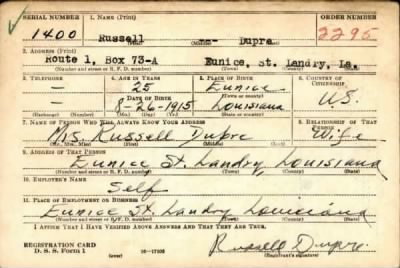 SERIAL NUMBER 1. NAME (Print) ORDER NUMBER
1400 Russell -- Dupre 2295
(First) (Middle) (Last)
2. ADDRESS (Print)
Route 1, Box 73-A Eunice, St. Landry, La.
(Number and street or R. F. D. number) (Town) (County) (State)
3. TELEPHONE 4. AGE IN YEARS 5. PLACE OF BIRTH 6. COUNTRY OF CITIZENSHIP
- 25 Eunice
DATE OF BIRTH (Town or county) U.S.
- 8-26-1915 Louisiana
(Exchange) (Number) (Mo.) (Day) (Yr.) (State or country)
7. NAME OF PERSON WHO WILL ALWAYS KNOW YOUR ADDRESS 8. RELATIONSHIP OF THAT PERSON
Mrs. Russell Dupre Wife
(Mr., Mrs., Miss) (First) (Middle) (Last)
9. ADDRESS OF THAT PERSON
Eunice St. Landry, Louisiana
(Number and street or R. F. D. number) (Town) (County) (State)
10. EMPLOYER'S NAME
Self
11. PLACE OF EMPLOYMENT OR BUSINESS
Eunice St. Landry, Louisiana
(Number and street or R. F. D. number) (Town) (County) (State)
I AFFIRM THAT I HAVE VERIFIED ABOVE ANSWERS AND THAT THEY ARE TRUE.
Russell Dupre
REGISTRATION CARD
D. S. S. Form 1 (over) (Registrant's signature)